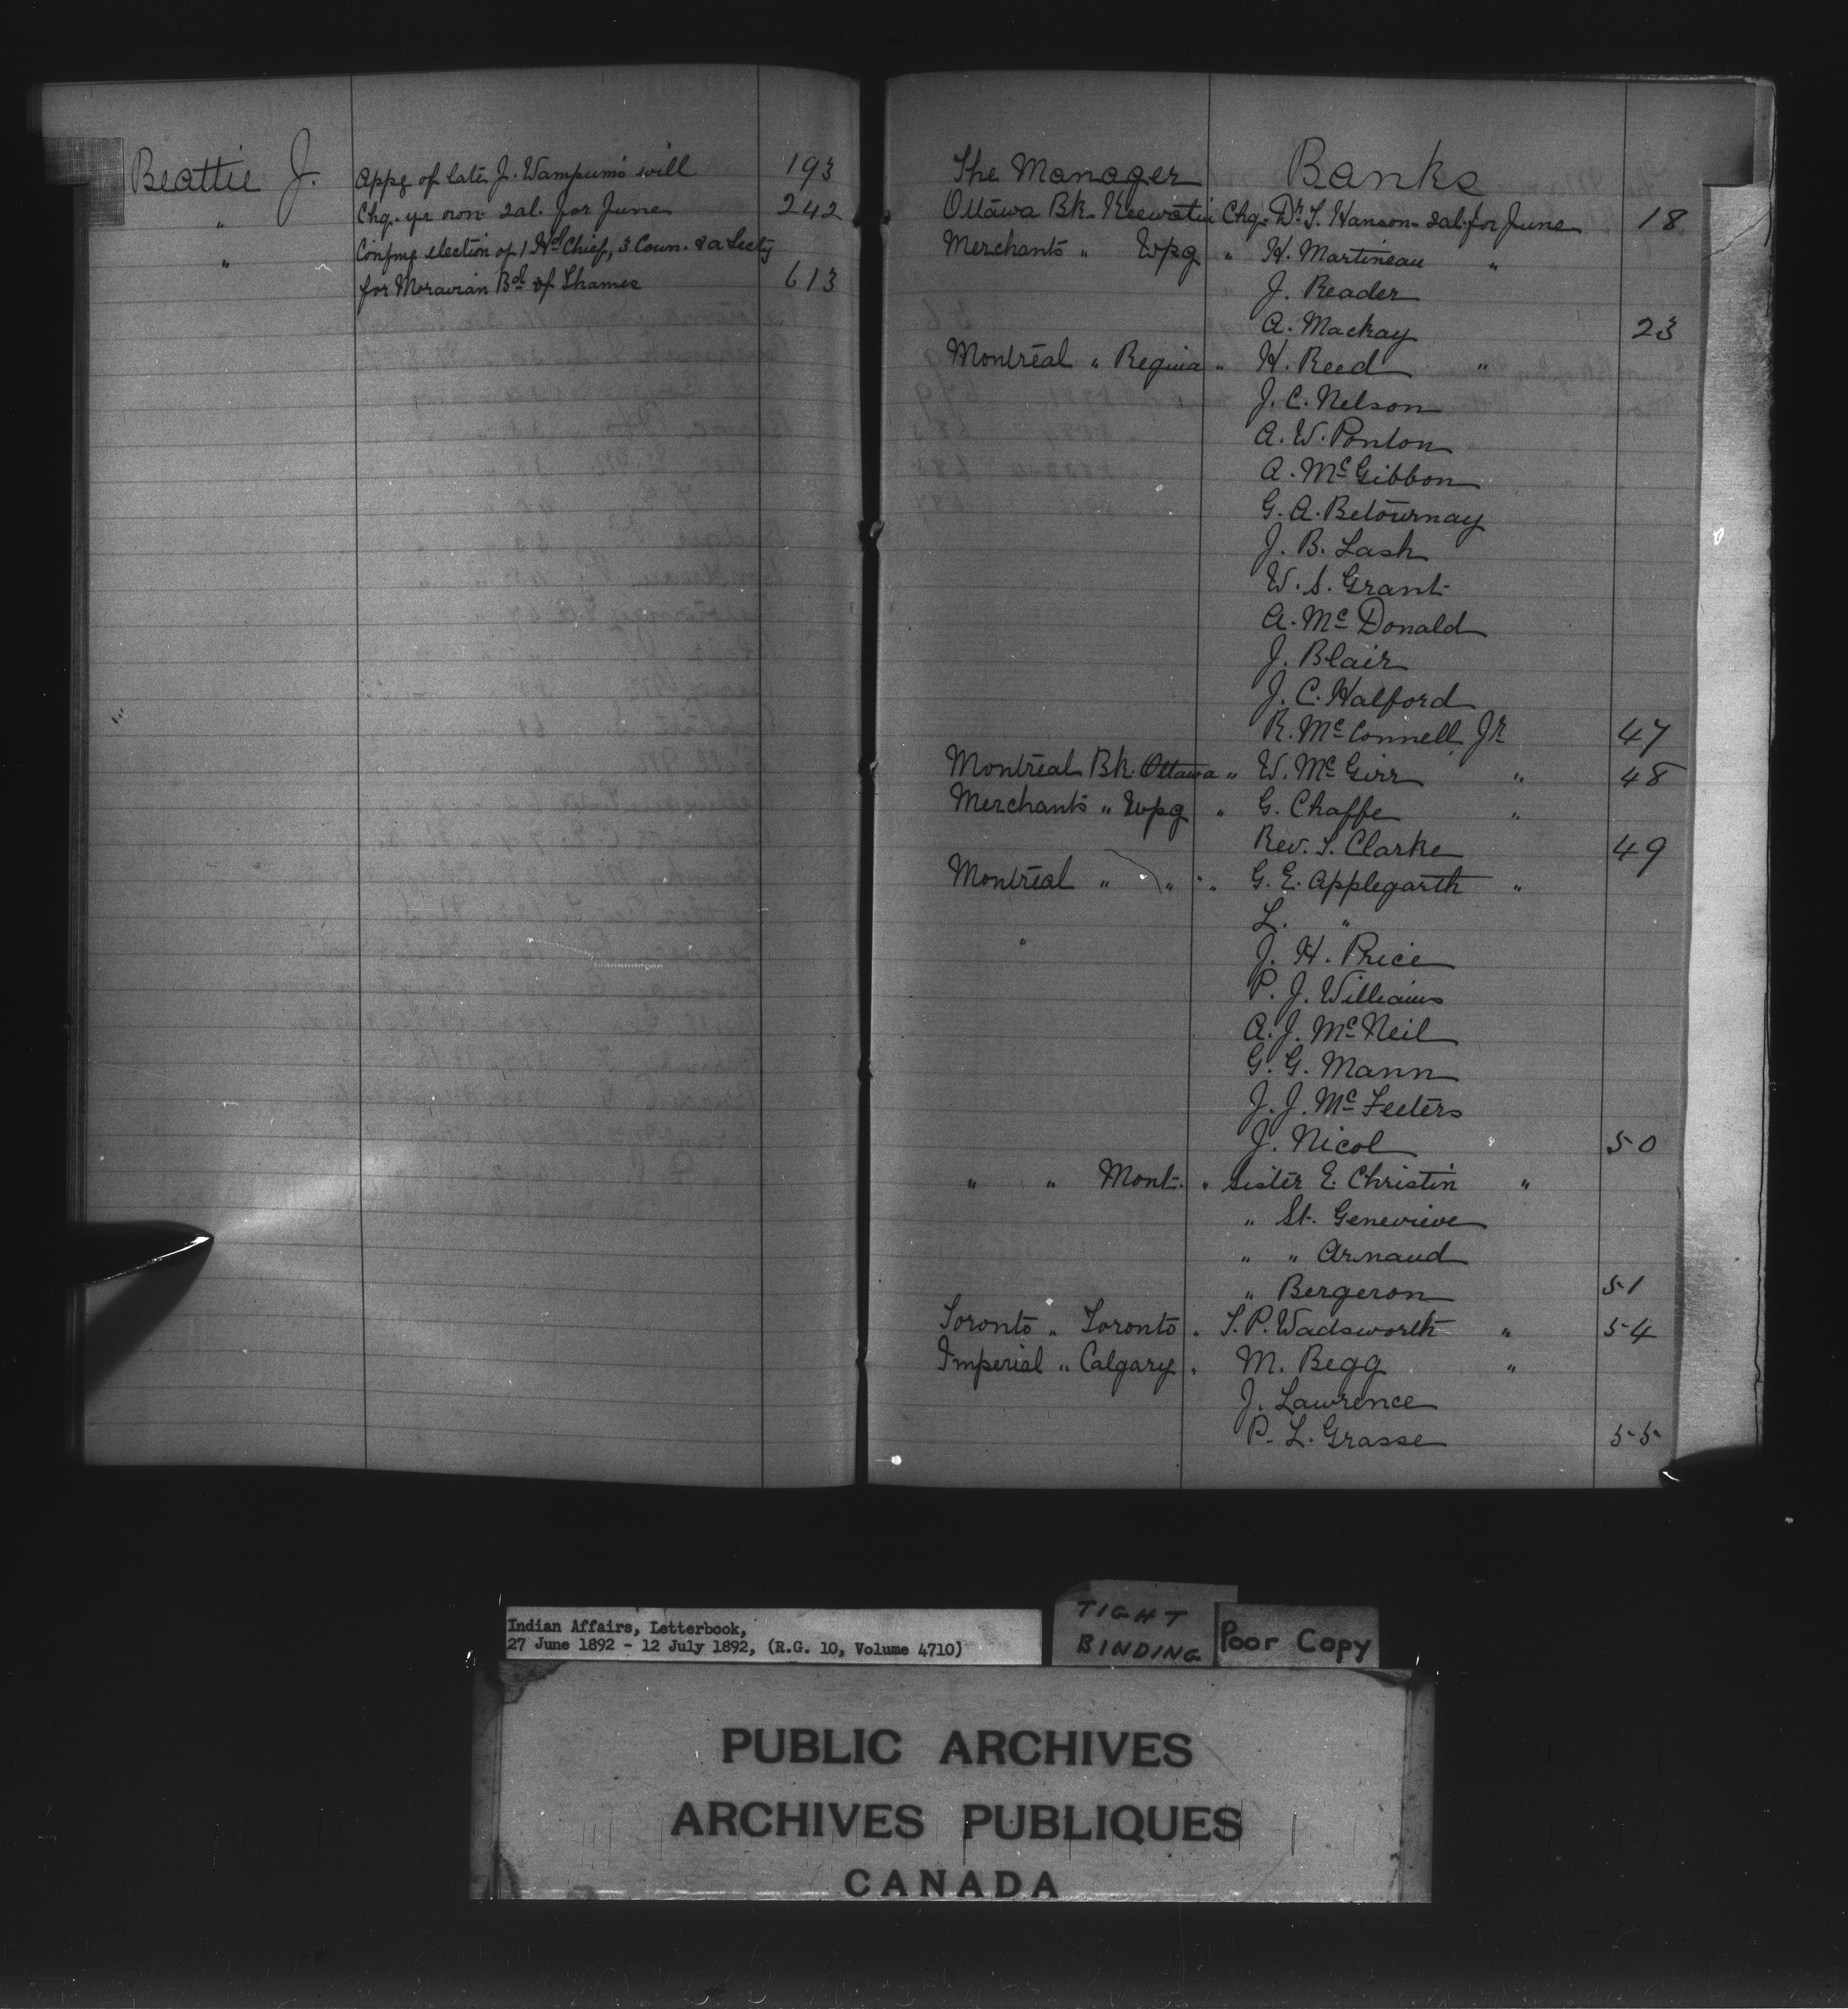 Beattie J. Appg of late J. Wampum's will 193
" Chq. yr own sal. for June 242
" Confmg election of 1 Hd Chief, 3 Coun. & a Secty
for Moravian Bd of Thames 613
The Manager Banks
Ottawa Bk. Keewatin Chq. Dr T. Hanson sal. for June 18
Merchants " Wpg " H. Martineau "
J. Reader
A. Mackay 23
Montreal " Regina " H. Reed "
J. C. Nelson
A. W. Ponton
A. McGibbon
G. A. Betournay
J. B. Lash
W. S. Grant
A. McDonald
J. Blair
J. C. Halford
R. McConnell Jr 47
Montreal Bk. Ottawa " W. McGirr " 48
Merchants " Wpg " G. Chaffe "
Rev. S. Clarke 49
Montreal " " " G. E. Applegarth "
L. "
J. H. Price
P. J. Williams
A. J. McNeil
G. G. Mann
J. J. McFeeters
J. Nicol 50
" " Mont. " Sister E. Christin "
" St. Genevieve
" " Arnaud
" Bergeron 51
Toronto " Toronto " T. P. Wadsworth " 54
Imperial " Calgary " M. Begg "
J. Lawrence
P. L. Grasse 55
Indian Affairs, Letterbook,
27 June 1892 - 12 July 1892, (R.G. 10, Volume 4710)
TIGHT
BINDING
Poor Copy
PUBLIC ARCHIVES
ARCHIVES PUBLIQUES
CANADA